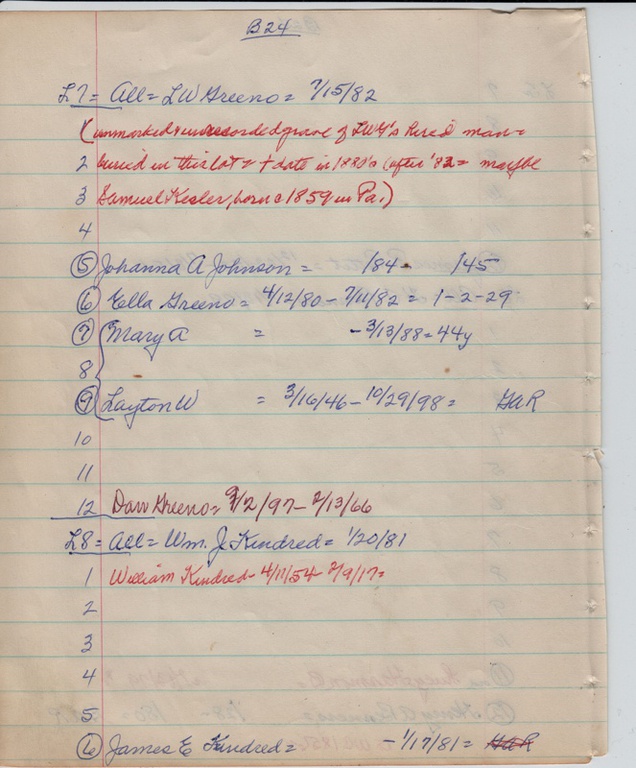 B24
L7 = All = LW Greeno = 7/15/82
(unmarked & unrecorded grave of LWG's hired man =
2 buried in this lot = + date in 1880's (after '82 = maybe
3 Samuel Kesler, born c 1859 in Pa.)
4
5 Johanna A Johnson = /84 - /45
6 Ella Greeno = 4/12/80 - 7/11/82 = 1-2-29
7 Mary A = - 3/13/88 = 44y
8
9 Layton W = 3/16/46 - 10/29/98 = GAR
10
11
12 Dan Greeno = 9/2/97 - 2/13/66
L8 = All = Wm. J. Kindred = 1/20/81
1 William Kindred - 4/11/54 - 2/9/17 =
2
3
4
5
6 James E Kindred = - 1/17/81 = GAR